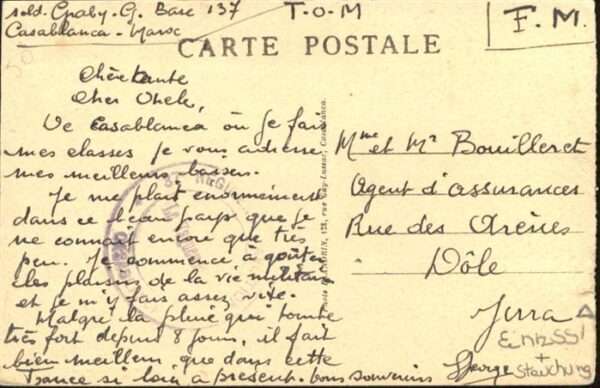 sold. Graby. G. Base 137
Casablanca - Maroc
T.O.M
F.M.
CARTE POSTALE
Chère tante
Cher Oncle,
De Casablanca où je fais
mes classes je vous adresse
mes meilleurs baisers.
Je me plait enormement
dans ce beau pays que je
ne connait encore que très
peu. Je commence à goûter
les plaisirs de la vie militaire
et je m'y fais assez vite.
Malgré la pluie qui tombe
très fort depuis 8 jours, il fait
bien meilleur que dans cette
France si loin a présent. bons souvenirs
George
Mme et Mr Bouilleret
Agent d'Assurances
Rue des Arènes
Dôle
Jura
Einriss
+
Stauchung